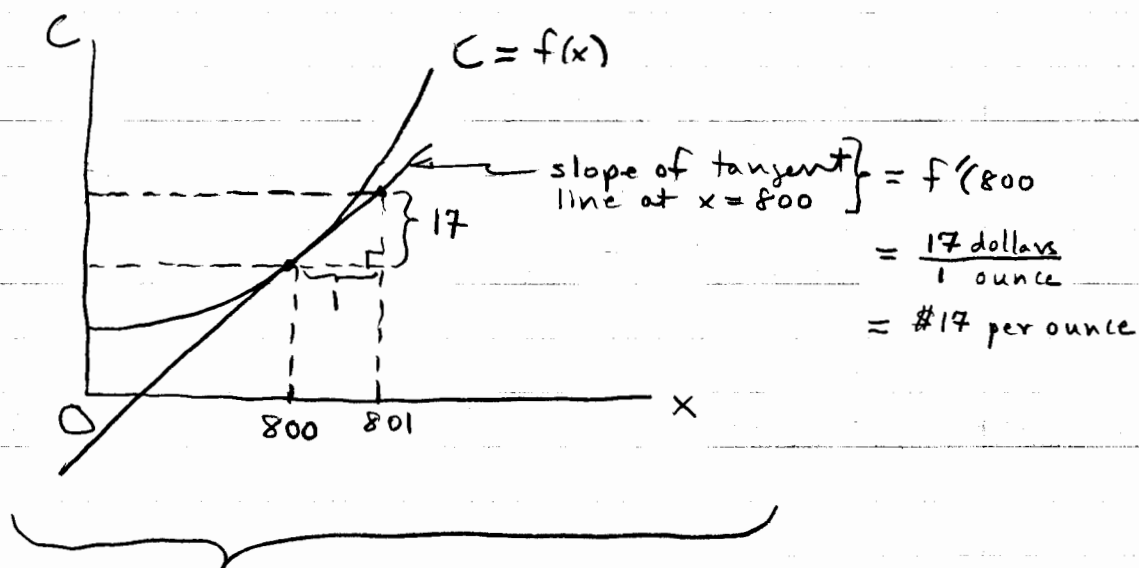 C
C = f(x)
slope of tangent
line at x = 800
= f'(800
17
= 17 dollars
1 ounce
1
= $17 per ounce
0
800
801
x